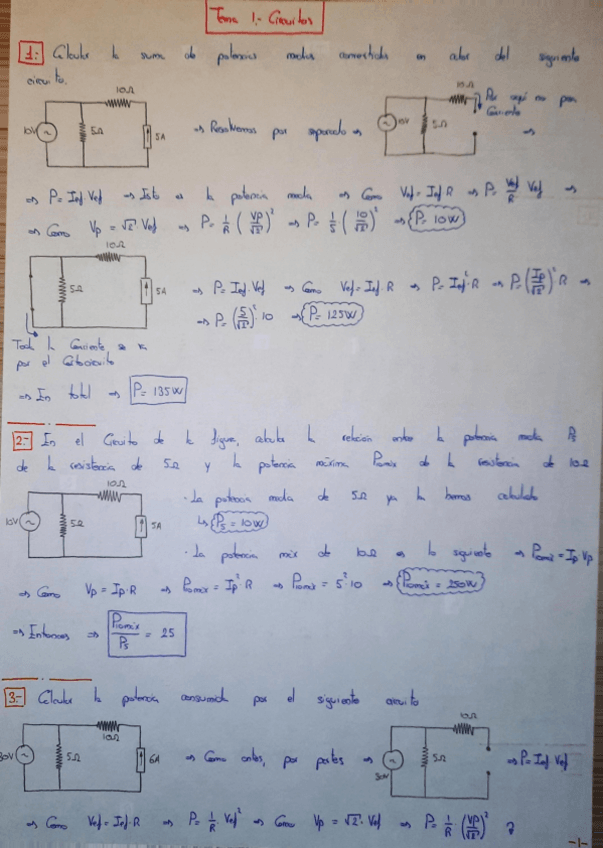 Tema 1.- Circuitos
1.- Calcular la suma de potencias medias convertidas en calor del siguiente
circuito.
10Ω 10V 5Ω 5A ⇒ Resolvemos por separado ⇒ 10V 5Ω 10Ω Por aquí no pasa
Corriente ⇒
⇒ P = Ief Vef ⇒ Esto es la potencia media ⇒ Como Vef = Ief R ⇒ P = Vef/R Vef ⇒
⇒ Como Vp = √2 Vef ⇒ P = 1/R (Vp/√2)² ⇒ P = 1/5 (10/√2)² ⇒ P = 10W
10Ω 5Ω 5A ⇒ P = Ief · Vef ⇒ Como Vef = Ief · R ⇒ P = Ief² · R ⇒ P = (Ip/√2)² R ⇒
⇒ P = (5/√2)² · 10 ⇒ P = 125W
Toda la Corriente se va
por el Cortocircuito
⇒ En total ⇒ P = 135W
2.- En el Circuito de la figura, calcula la relación entre la potencia media P5
de la resistencia de 5Ω y la potencia máxima P10máx de la resistencia de 10Ω
10Ω 10V 5Ω 5A · La potencia media de 5Ω ya la hemos calculado
↳ P5 = 10W
· La potencia máx de 10Ω es la siguiente ⇒ P10máx = Ip Vp
⇒ Como Vp = Ip · R ⇒ P10máx = Ip² · R ⇒ P10máx = 5² · 10 ⇒ P10máx = 250W
⇒ Entonces ⇒ P10máx/P5 = 25
3.- Calcular la potencia consumida por el siguiente circuito
30V 5Ω 10Ω 6A ⇒ Como antes, por partes ⇒ 30V 5Ω 10Ω ⇒ P = Ief Vef
⇒ Como Vef = Ief · R ⇒ P = 1/R Vef² ⇒ Como Vp = √2 · Vef ⇒ P = 1/R (Vp/√2)²
-1-